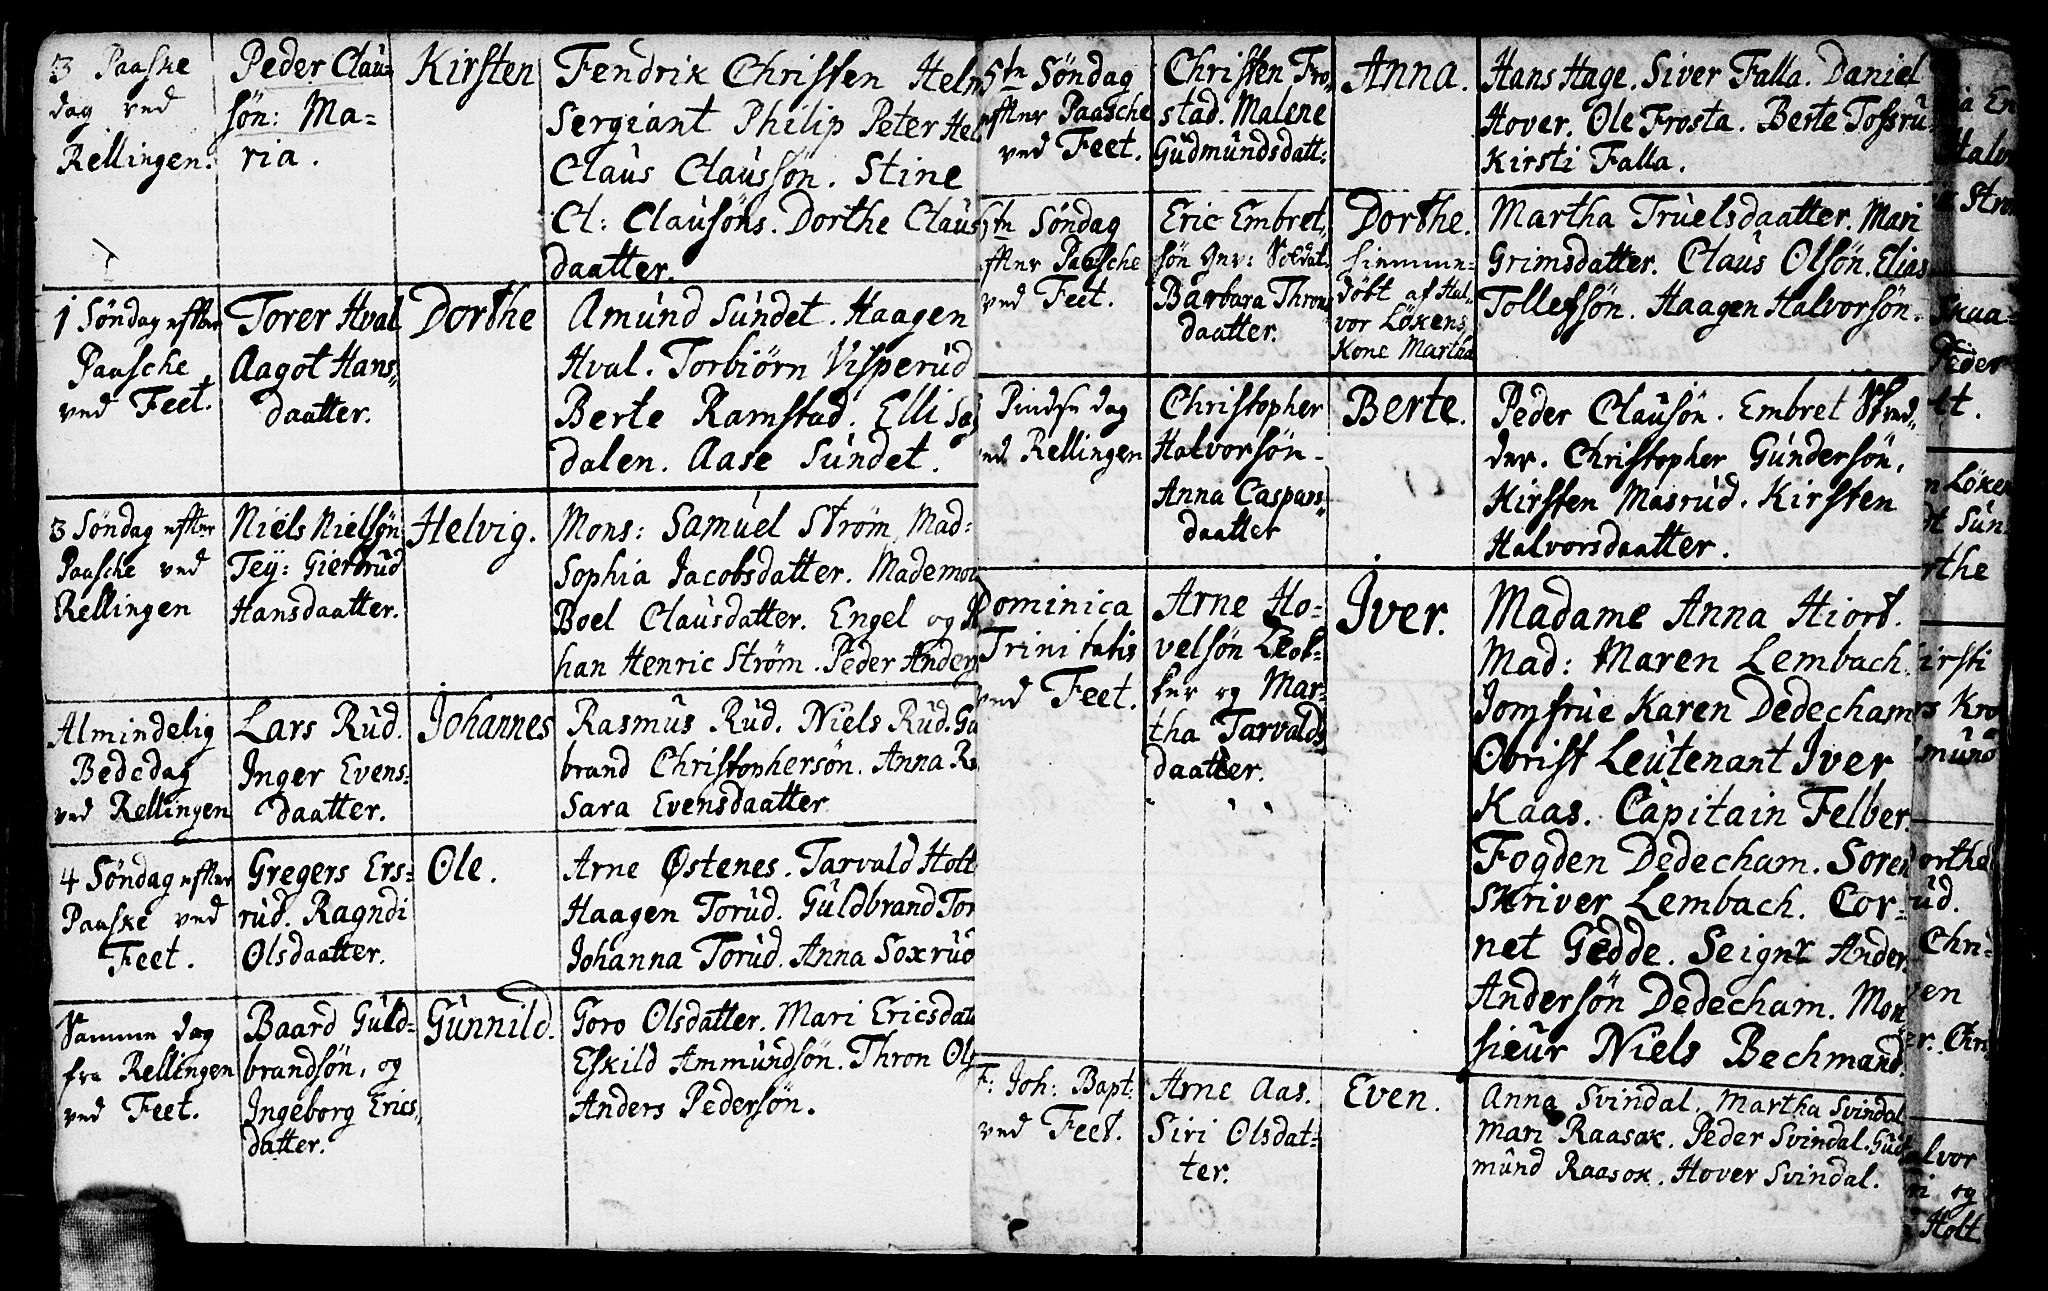 3 Paaske
dag ved
Rellingen.
Peder Clau=
søn: Ma=
ria.
Kirsten
Fendrik Christen
Sergiant Philip Peter
Claus Claussøn. Stine
Cl: Clausøns. Dorthe Claus
daatter.
1 Søndag effter
Paasche
ved Feet.
Torer Hval
Aagot Hans=
daatter.
Dorthe
Amund Sundet. Haagen
Hval. Torbiørn Visperud
Berte Ramstad. Elli
dalen. Aase Sundet.
3 Søndag effter
Paasche ved
Rellingen
Niels Nielsøn
Tey: Giertrud
Hansdaatter.
Helvig.
Mons: Samuel Strøm, Mad:
Sophia Jacobsdatter. Mademoi
Boel Clausdatter. Engel og
han Henric Strøm. Peder Anders
Almindelig
Bededag
ved Rellingen
Lars Rud.
Inger Evens=
daatter.
Johannes
Rasmus Rud. Niels Rud. Gu
brand Christophersøn. Anna
Sara Evensdaatter
4 Søndag effter
Paaske ved
Feet.
Gregers Ers=
rud. Ragndi
Olsdaatter.
Ole.
Arne Østenes. Tarvald Holt
Haagen Torud. Guldbrand Tor
Johanna Torud. Anna Soxrud
Samme dag
fra Rellingen
ved Feet.
Baard Guld=
brandsøn, og
Ingeborg Erics
datter.
Gunnild.
Goro Olsdatter. Mari Ericsdat
Eskild Ammundsøn. Thron Ols
Anders Pedersøn.
5tn Søndag
effter Paasche
ved Feet.
Christen Fro=
stad. Malene
Gudmundsdatt:
Anna.
Hans Hage. Siver Falla. Daniel
Hover. Ole Frosta. Berte Tossru=
Kirsti Falla.
5tn Søndag
effter Paasche
ved Feet.
Eric Embret=
søn Gev: Soldat.
Barbara Throns
daatter.
Dorthe.
hiemme=
døbt af Hal=
vor Løkens
Kone Martha
Martha Truelsdaatter. Mari
Grimsdatter. Claus Olsøn. Elias
Tollefsøn. Haagen Halvorsøn.
Pindse dag
ved Rellingen
Christopher
Halvorsøn.
Anna Caspars=
daatter
Berte.
Peder Clausøn. Embret
Christopher Gundersøn.
Kirsten Masrud. Kirsten
Halvorsdaatter.
Dominica
Trinitatis
ved Feet.
Arne Ho=
velsøn
og Mar=
tha Tarvalds
daatter.
Iver.
Madame Anna Hiort.
Mad: Maren Lembach.
Jomfrue Karen Dedecham
Obrist Leutenant Iver
Kaas. Capitain Felber.
Fogden Dedecham. Soren
skriver Lembach. Cor=
net Gedde. Seignr Anders
Andersøn Dedecham. Mon
sieur Niels Bechmand.
F: Joh: Bapt:
ved Feet.
Arne Aas.
Siri Olsdat=
ter.
Even.
Anna Svindal. Martha Svindal
Mari Raasok. Peder Svindal. Gud
mund Raasok. Hover Svindal.
Løken
Kirsti
Holt.